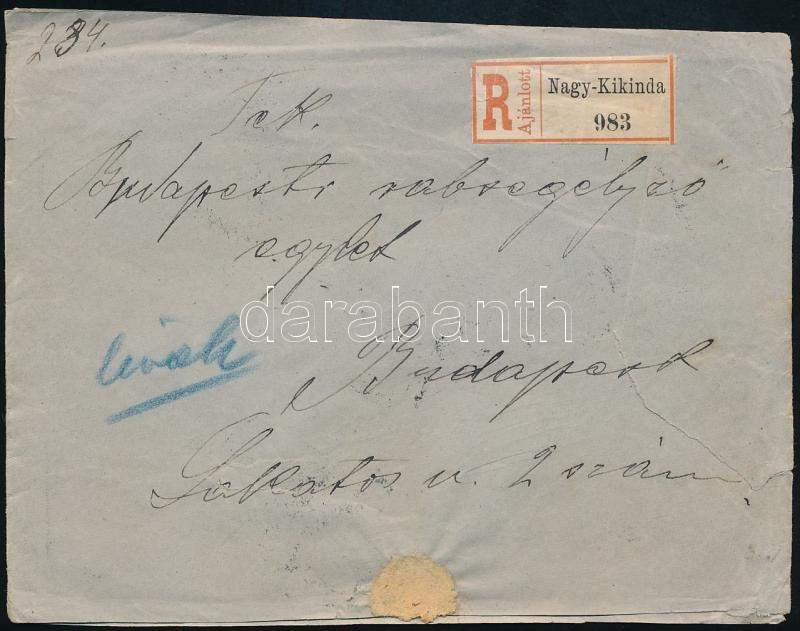 234.
R Ajánlott Nagy-Kikinda
983
Tek.
Budapesti rabsegélyző
egylet
darabanth
Budapest
Lakatos u. 2 szám